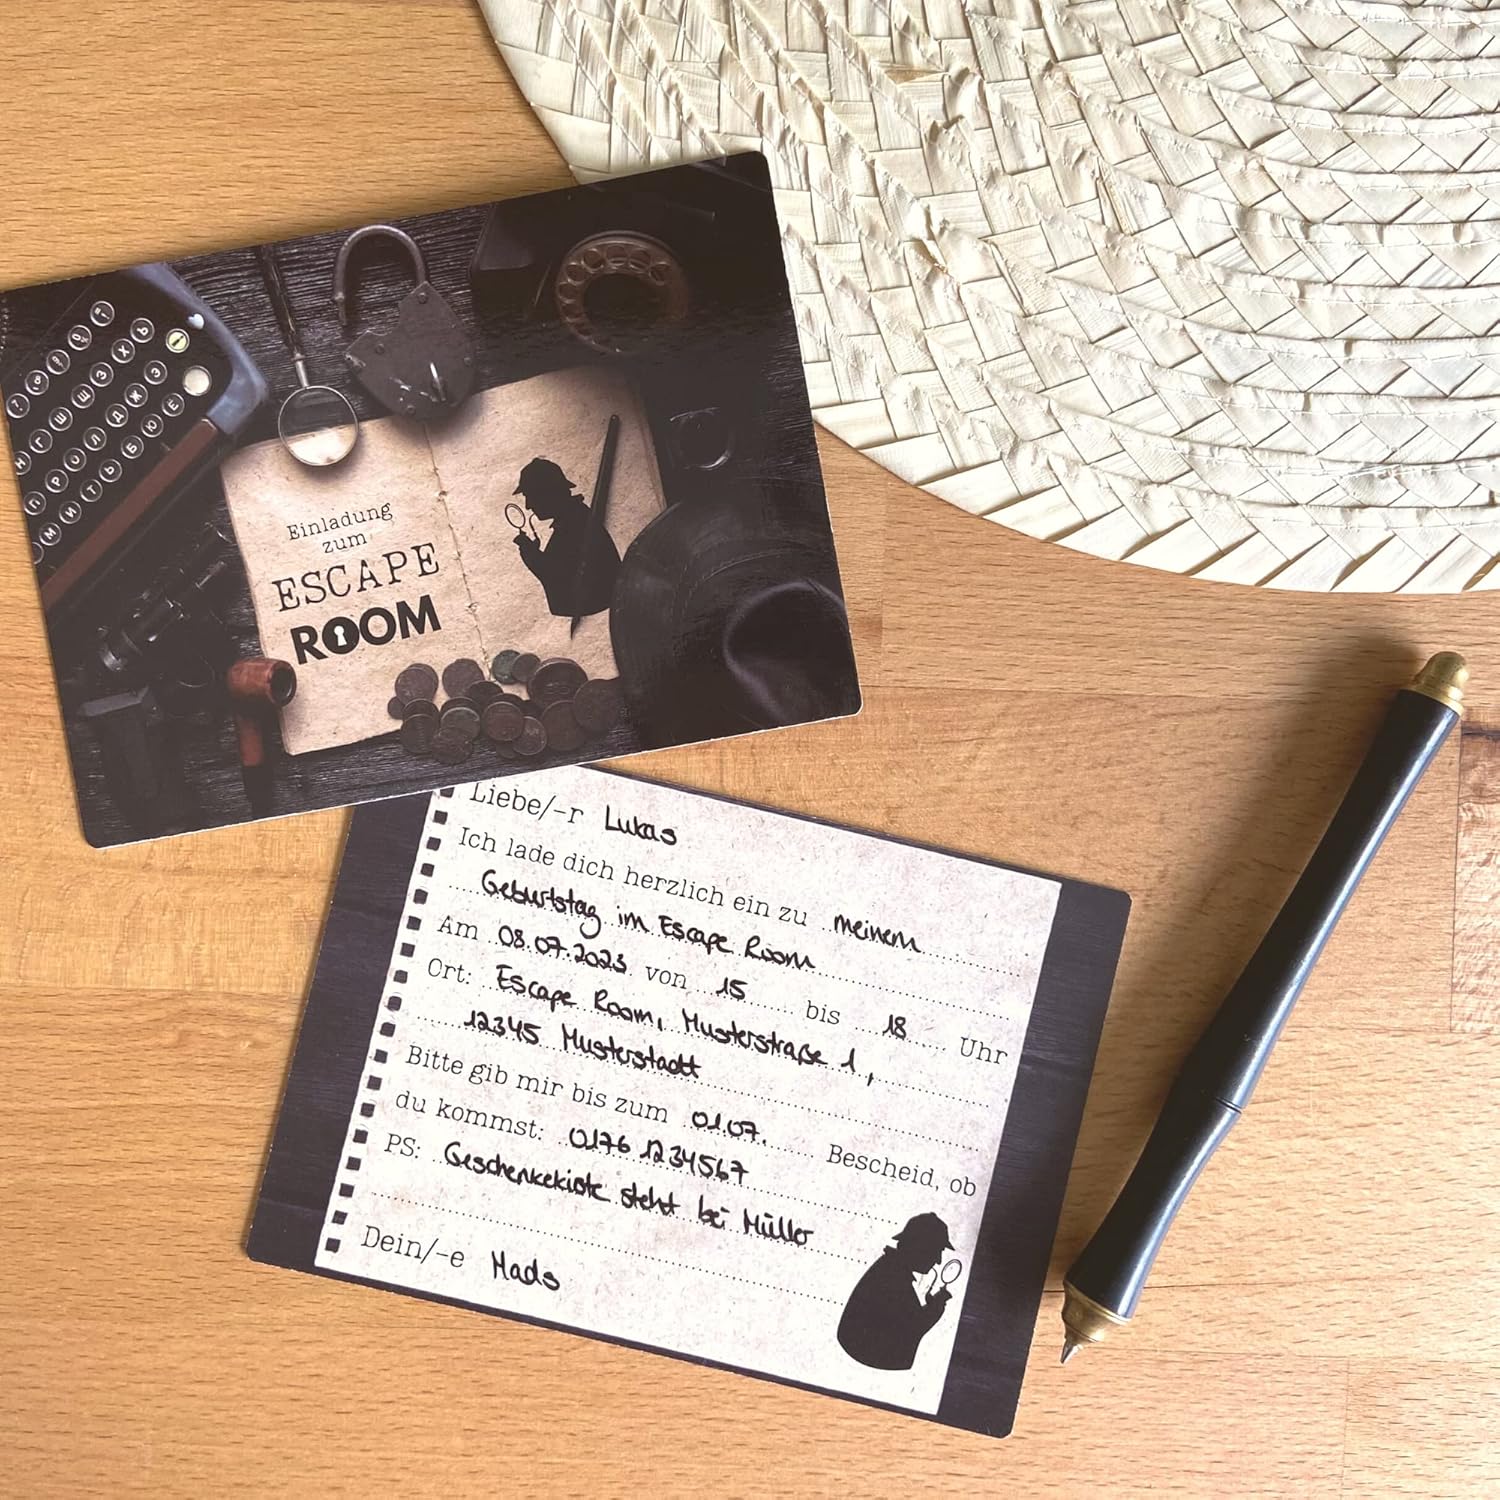 Einladung
zum
ESCAPE
ROOM
Liebe/-r Lukas
Ich lade dich herzlich ein zu meinem
Geburtstag im Escape Room
Am 08.07.2023 von 15 bis 18 Uhr
Ort: Escape Room, Musterstraße 1,
12345 Musterstadt
Bitte gib mir bis zum 01.07. Bescheid, ob
du kommst: 0176 1234567
PS: Geschenkekiste steht bei Müller
Dein/-e Mads